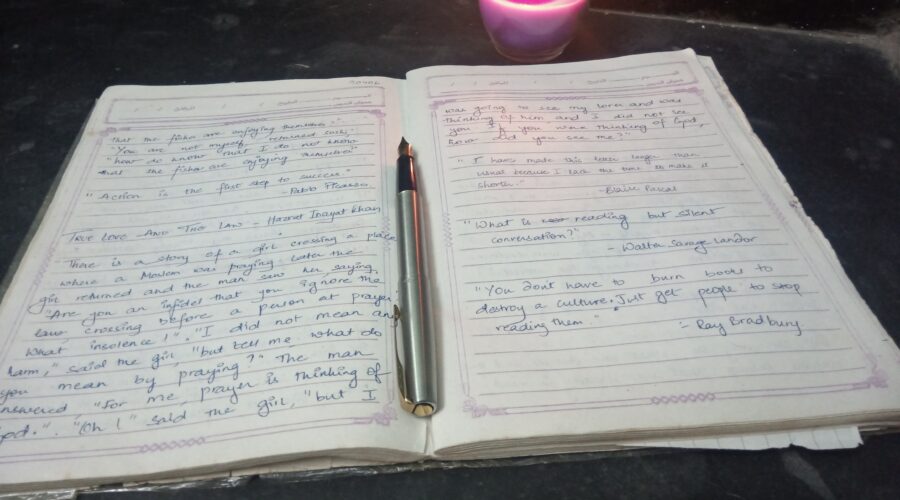 that the fishes are enjoying themselves."
"You are not myself," returned such.
"how do know that I do not know
that the fishes are enjoying themselves"
"Action is the first step to success."
- Pablo Picasso.
TRUE LOVE - AND THE LAW - Hazret Inayat Khan
"There is a story of a girl crossing a place
where a Moslem was praying. Later the
girl returned and the man saw her, saying
"Are you an infidel that you ignore the
law, crossing before a person at prayer
What insolence!". "I did not mean any
harm," said the girl, "but tell me what do
you mean by praying?" The man
answered, "For me, prayer is thinking of
God.". "Oh!" said the girl, "but I
was going to see my lover and was
thinking of him and I did not see
you. If you were thinking of God,
how did you see me?"
"I have made this letter longer than
usual because I lack the time to make it
shorter."
- Blaise Pascal
"What is reading but silent
conversation?"
- Walter Savage Landor
"You don't have to burn books to
destroy a culture. Just get people to stop
reading them."
- Ray Bradbury